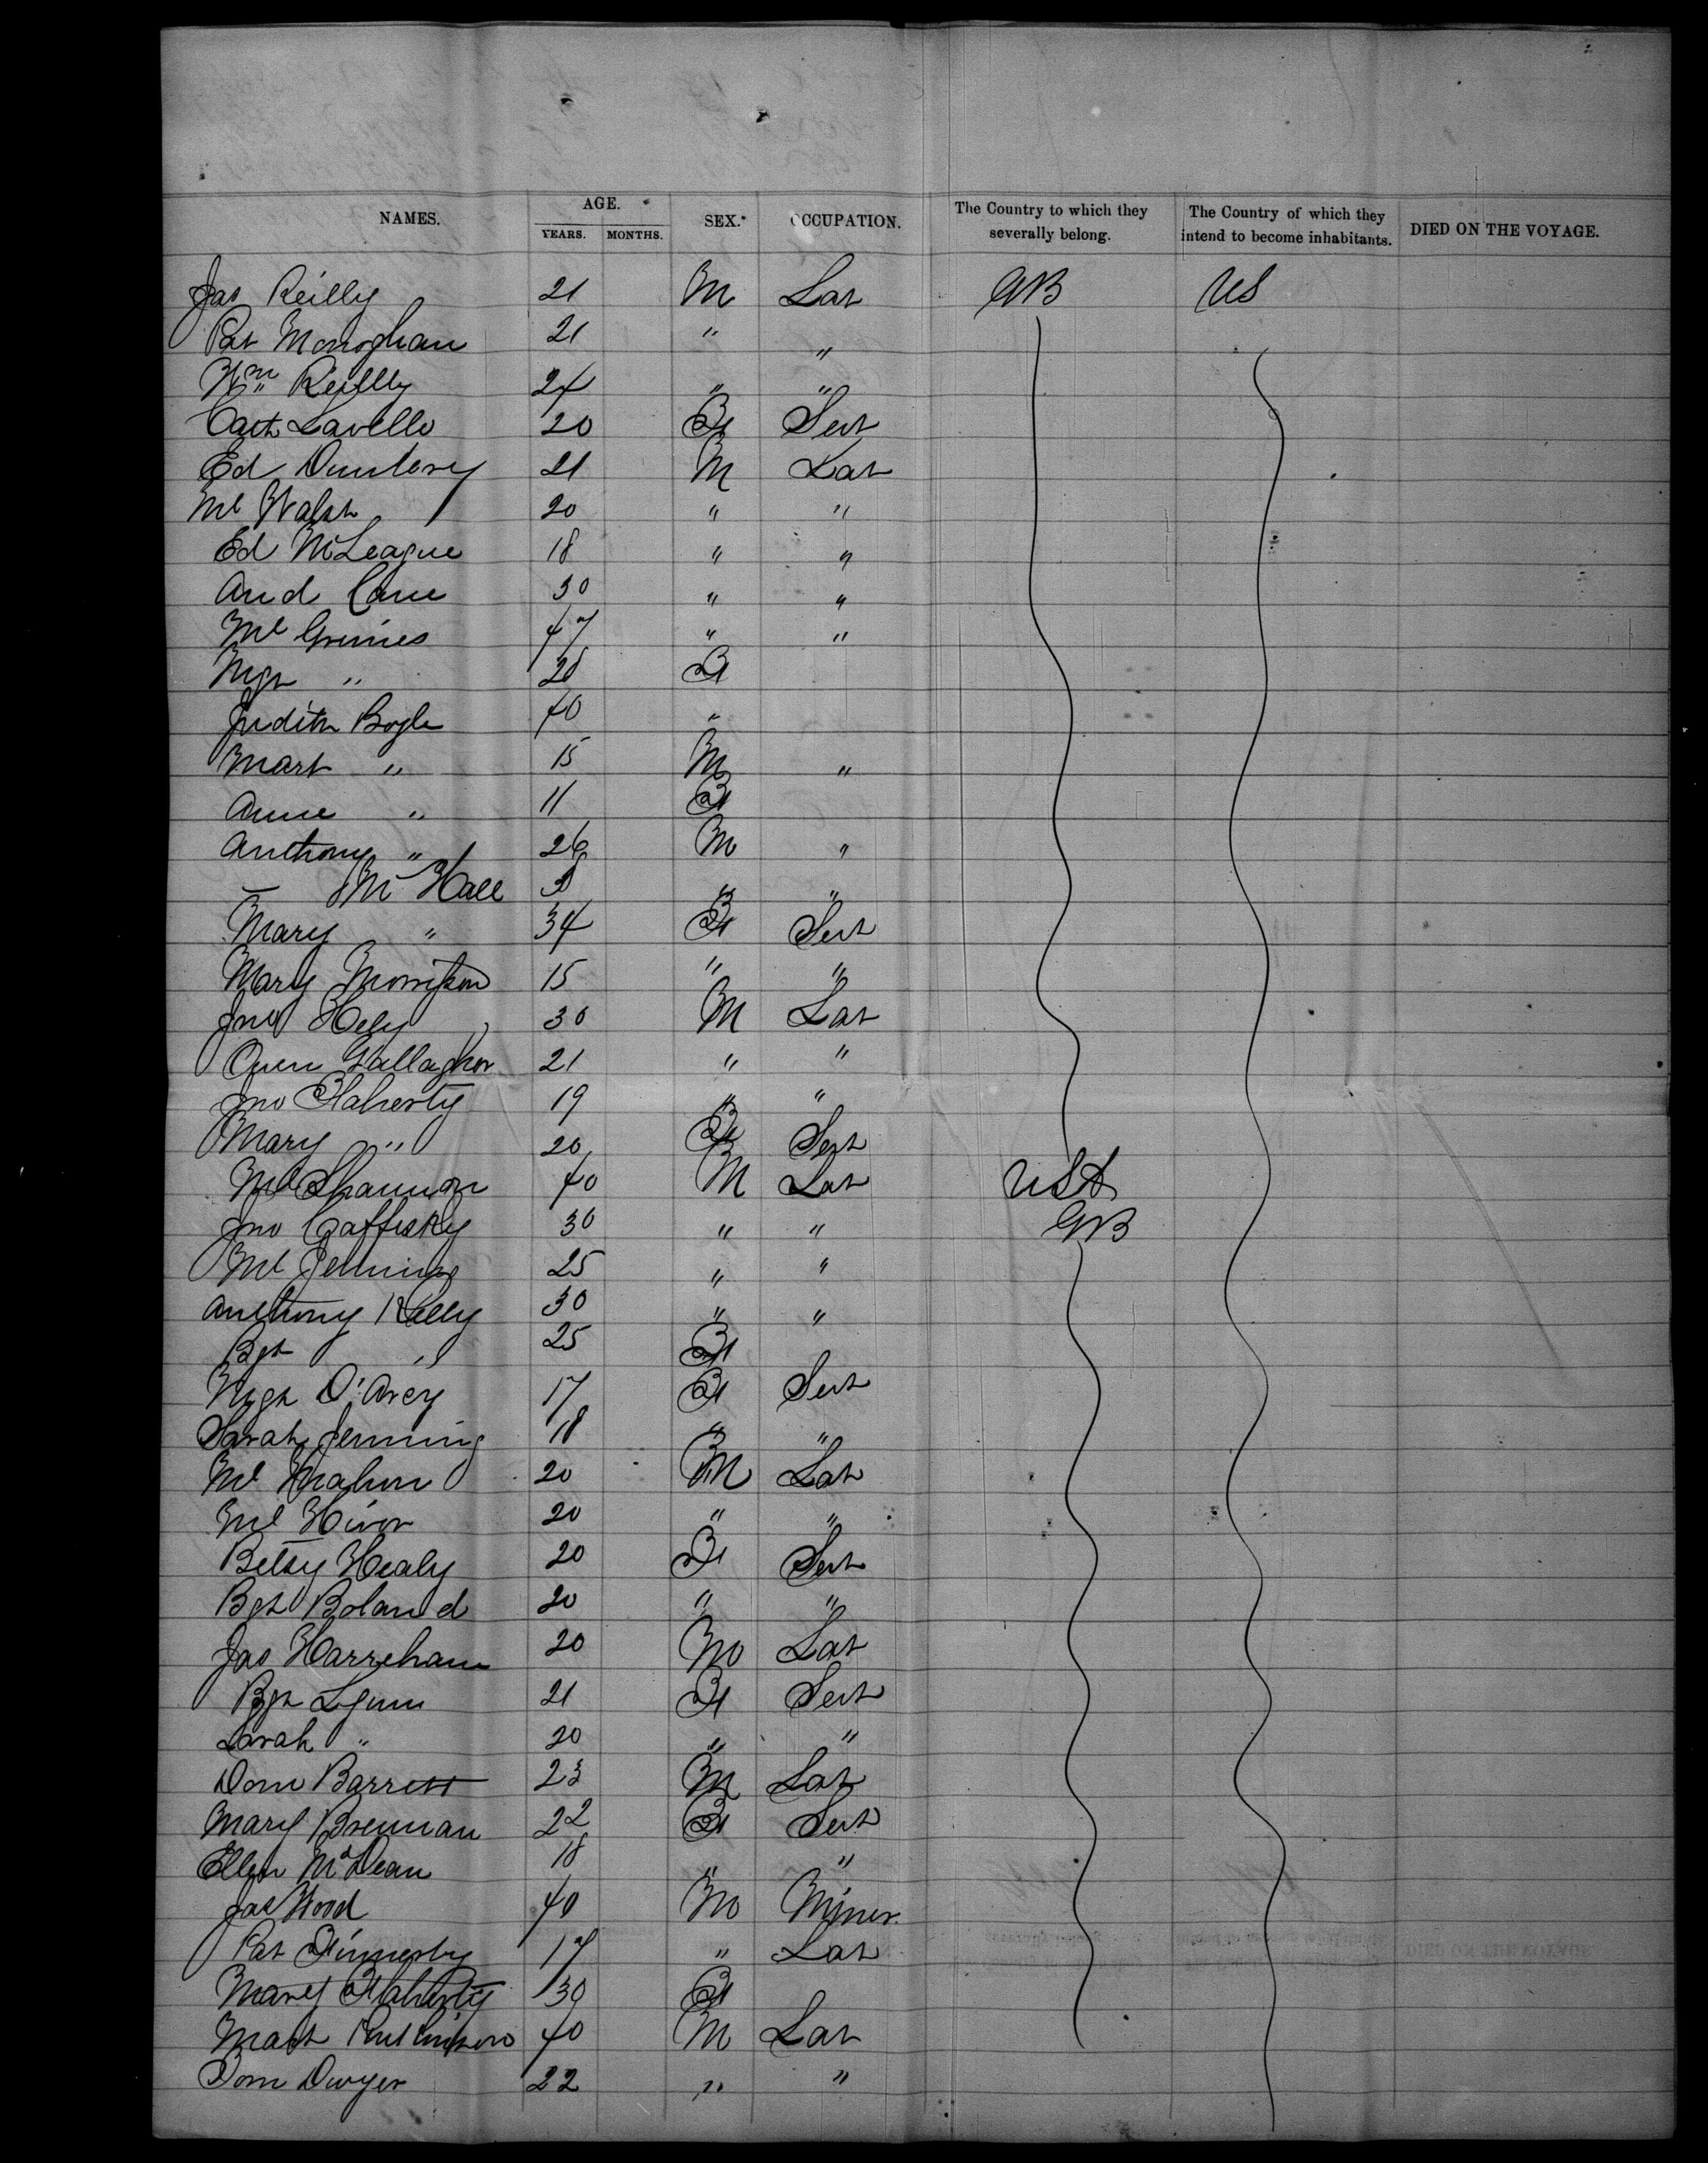 NAMES. AGE. YEARS. MONTHS. SEX. OCCUPATION. The Country to which they severally belong. The Country of which they intend to become inhabitants. DIED ON THE VOYAGE.
Jas Reilly 21 M Lab GB US
Pat Monoghan 21 " "
Wm Reilly 24 " "
Cath Lavelle 20 F Sert
Ed Dunlevy 21 M Lab
Ml Walsh 20 " "
Ed McLeague 18 " "
And Cane 30 " "
Ml Grimes 47 " "
Mgt " 28 F
Judith Boyle 40 "
Mart " 15 M "
Anne " 11 F
Anthony " 26 M "
— McHale " "
Mary " 34 F Sert
Mary Morrison 15 " "
Jno Hely 30 M Lab
Owen Gallagher 21 " "
Jno Flaherty 19 " "
Mary " 20 F Sert
Ml Shannon 40 M Lab USA
Jno Caffrky 30 " " GB
Ml Jennings 25 " "
Anthony Kelly 30 " "
Bgt " 25 F
Mgt D'Arcy 17 F Sert
Sarah Jenning 18 " "
Ml Mahon 20 M Lab
Ml Hivor 20 " "
Betsy Healy 20 F Sert
Bgt Boland 20 " "
Jas Harrehan 20 M Lab
Bgt Lynn 21 F Sert
Sarah " 20 " "
Dom Barrett 23 M Lab
Mary Brennan 22 F Sert
Ellen McLean 18 " "
Jas Wood 40 M Miner
Pat Finnerty 17 " Lab
Mary Flaherty 30 F
Mart 40 M Lab
Tom Dwyer 22 " "